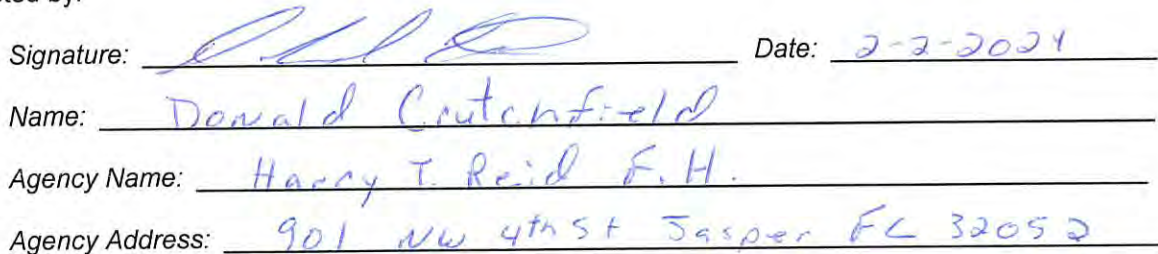 ted by:
Signature: Date: 2-2-2024
Name: Donald Crutchfield
Agency Name: Harry T. Reid F.H.
Agency Address: 901 NW 4th St Jasper FL 32052